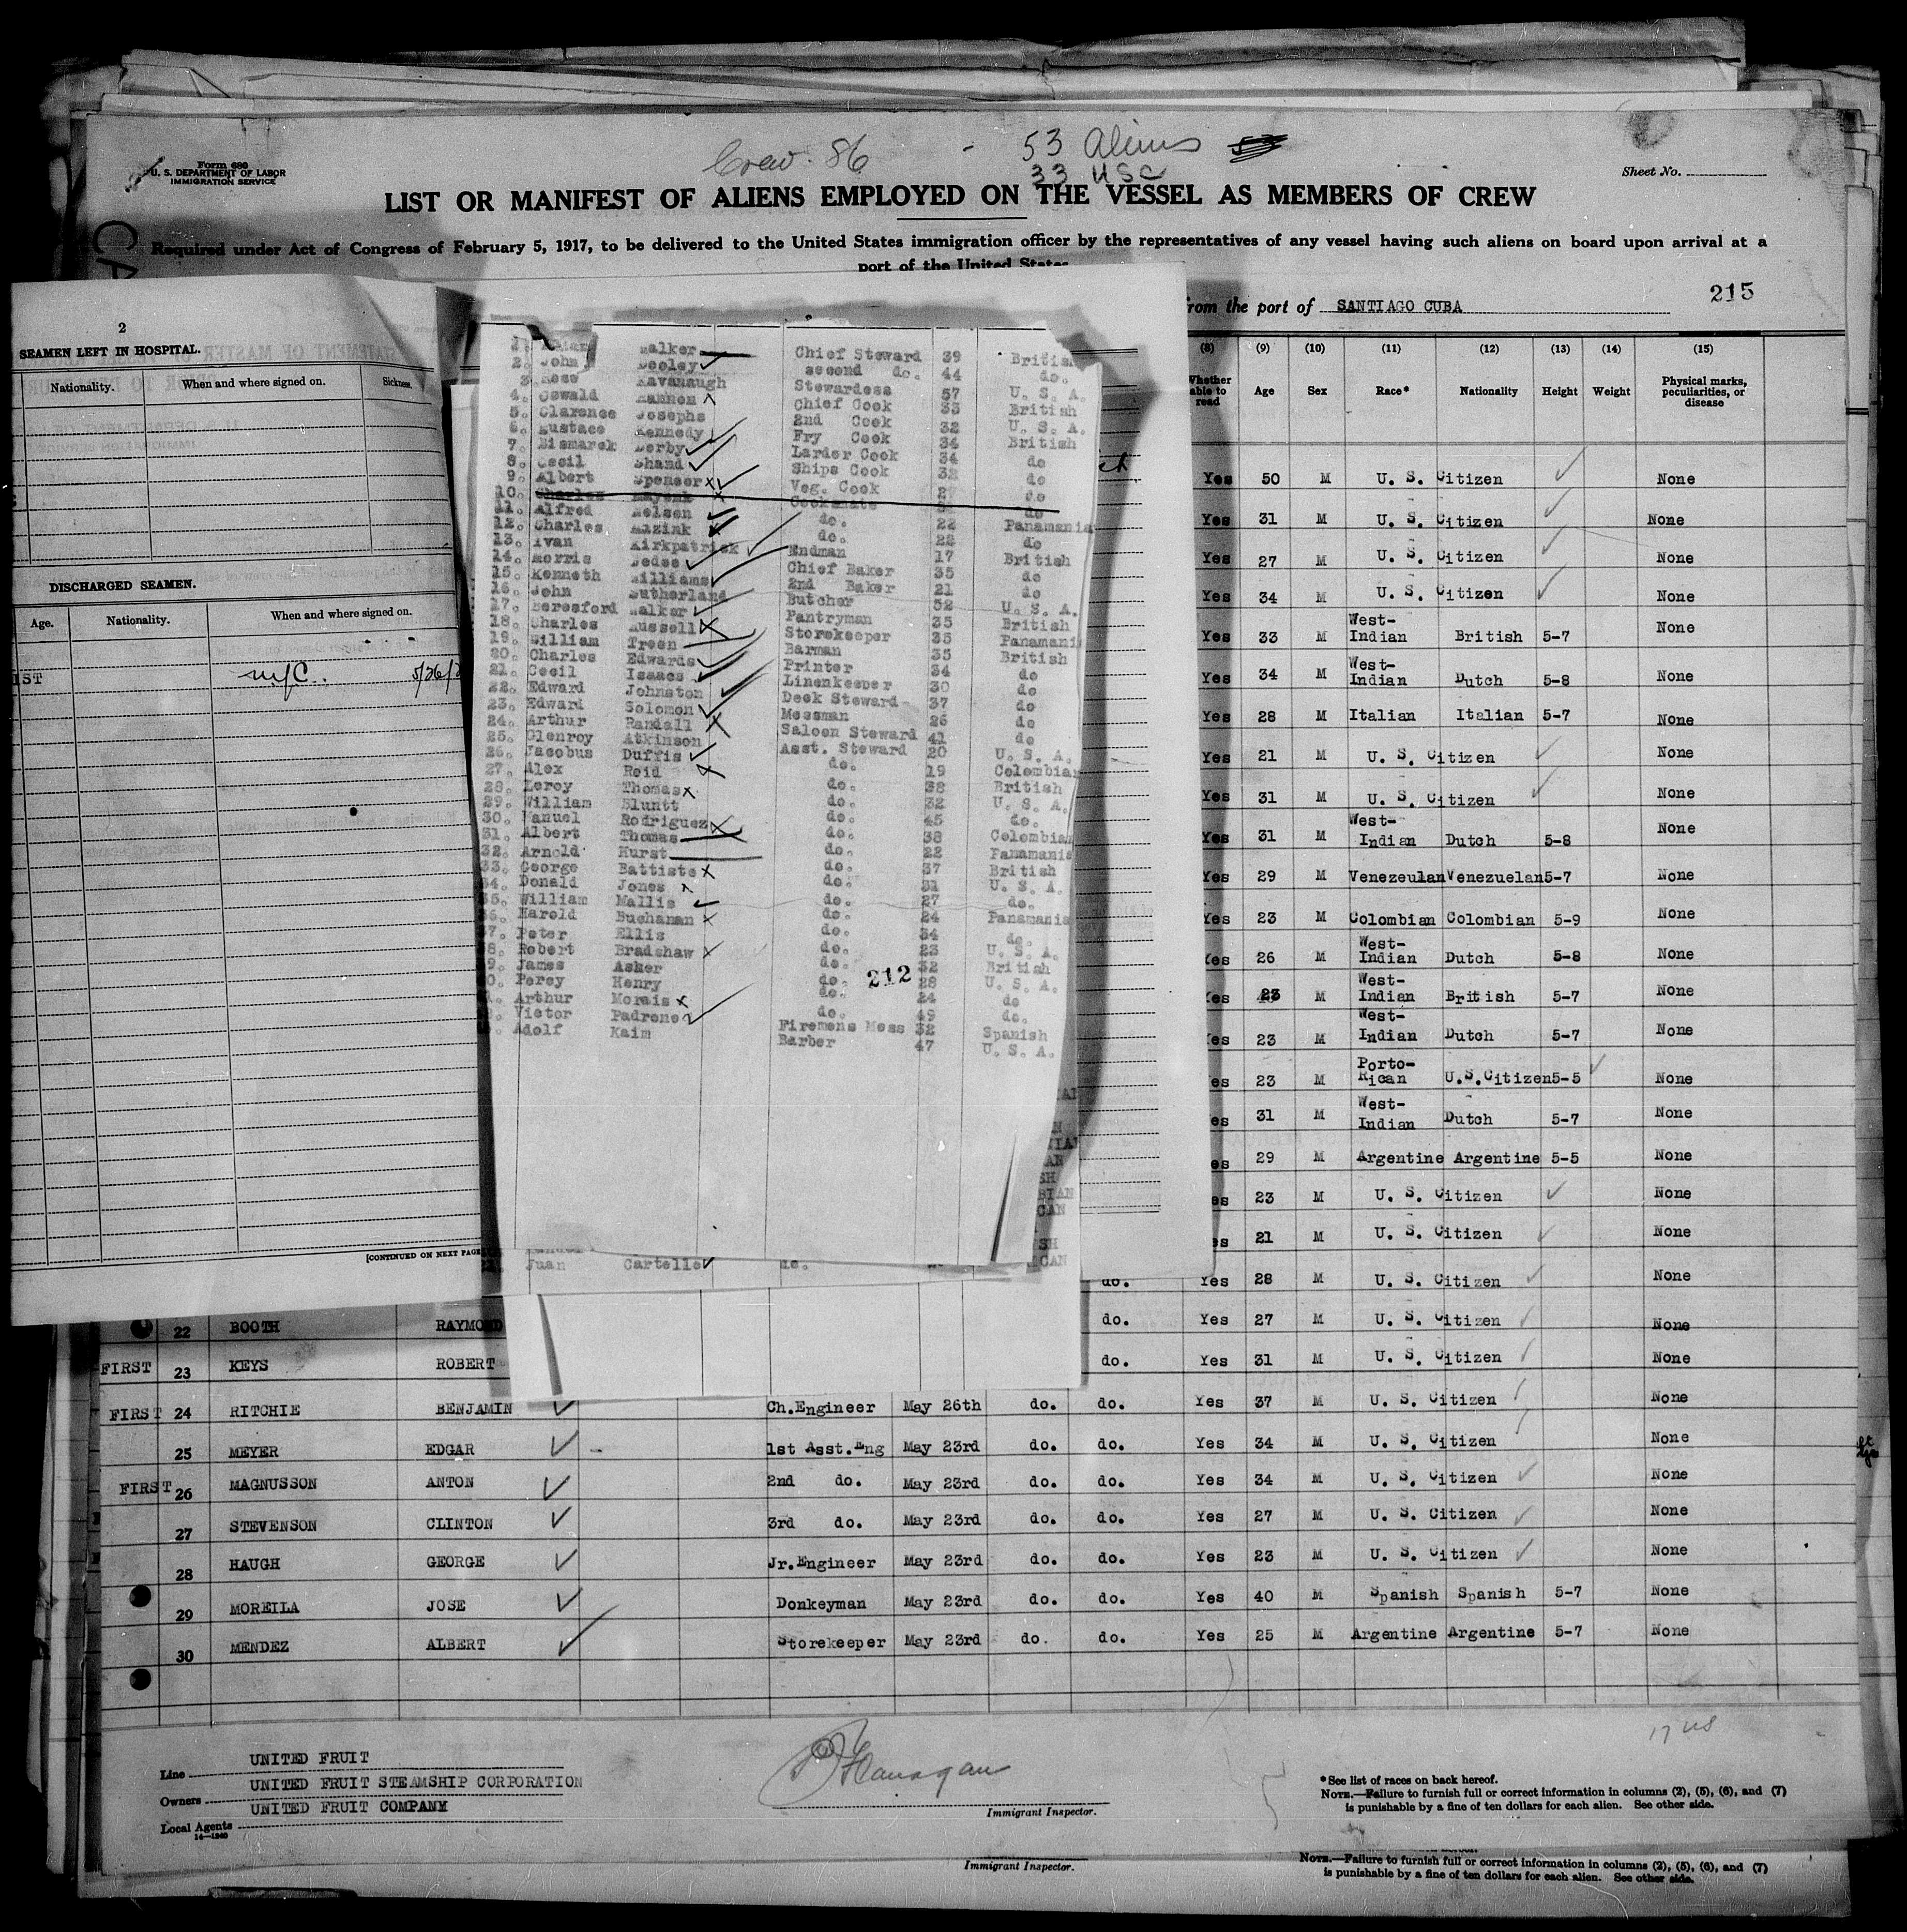 Crew. 86 - 53 Aliens
33 USC
Form 680
U. S. DEPARTMENT OF LABOR
IMMIGRATION SERVICE
Sheet No.
LIST OR MANIFEST OF ALIENS EMPLOYED ON THE VESSEL AS MEMBERS OF CREW
Required under Act of Congress of February 5, 1917, to be delivered to the United States immigration officer by the representatives of any vessel having such aliens on board upon arrival at a
port of the United States
from the port of SANTIAGO CUBA
215
2
SEAMEN LEFT IN HOSPITAL.
Nationality. When and where signed on. Sickness.
DISCHARGED SEAMEN.
Age. Nationality. When and where signed on.
5/26/2
[CONTINUED ON NEXT PAGE
1. Walker Chief Steward 39 British
2. John Dooley second do. 44 do.
3. Rose Kavanaugh Stewardess 57 U. S. A.
4. Oswald Chief Cook 33 British
5. Clarence Josephs 2nd Cook 32 U. S. A.
6. Eustace Kennedy Fry Cook 34 British
7. Bismarck Derby Larder Cook 34 do
8. Cecil Shand Ships Cook 32 do
9. Albert Spenser Veg. Cook do
10. Charles Cooksmate do
11. Alfred Nelson do. 22 Panamania
12. Charles Alzink do. 22 do
13. Ivan Kirkpatrick Endman 17 British
14. Morris Dedee Chief Baker 35 do
15. Kenneth Williams 2nd Baker 21 do
16. John Sutherland Butcher 52 U. S. A.
17. Beresford Walker Pantryman 35 British
18. Charles Russell Storekeeper 35 Panamani
19. William Treen Barman 35 British
20. Charles Edwards Printer 34 do
21. Cecil Isaacs Linenkeeper 30 do
22. Edward Johnston Deck Steward 37 do
23. Edward Solomon Messman 26 do
24. Arthur Randall Saloon Steward 41 do
25. Glenroy Atkinson Asst. Steward 20 U. S. A.
26. Jacobus Duffis do. 19 Colombian
27. Alex Reid do. 38 British
28. Leroy Thomas do. 32 U. S. A.
29. William Bluntt do. 45 do.
30. Manuel Rodriguez do. 38 Colombian
31. Albert Thomas do. 22 Panamania
32. Arnold Hurst do. 37 British
33. George Battiste do. 31 U. S. A.
34. Donald Jones do. 27 do.
35. William Mallis do. 24 Panamania
36. Harold Buchanan do. 34 do.
37. Peter Ellis do. 23 U. S. A.
38. Robert Bradshaw do. 32 British
39. James Asker do. 28 U. S. A.
0. Percy Henry do. 24 do
Arthur Morais do. 49 do.
Victor Padrone Firemens Mess 32 Spanish
Adolf Kaim Barber 47 U. S. A.
212
Juan Cartelle do.
(8) (9) (10) (11) (12) (13) (14) (15)
Whether able to read Age Sex Race* Nationality Height Weight Physical marks, peculiarities, or disease
Yes 50 M U. S. Citizen None
Yes 31 M U. S. Citizen None
Yes 27 M U. S. Citizen None
Yes 34 M U. S. Citizen None
Yes 33 M West-Indian British 5-7 None
Yes 34 M West-Indian Dutch 5-8 None
Yes 28 M Italian Italian 5-7 None
Yes 21 M U. S. Citizen None
Yes 31 M U. S. Citizen None
Yes 31 M West-Indian Dutch 5-8 None
Yes 29 M Venezeulan Venezuelan 5-7 None
Yes 23 M Colombian Colombian 5-9 None
Yes 26 M West-Indian Dutch 5-8 None
Yes 23 M West-Indian British 5-7 None
Yes 23 M West-Indian Dutch 5-7 None
es 23 M Porto-Rican U.S.Citizen 5-5 None
es 31 M West-Indian Dutch 5-7 None
es 29 M Argentine Argentine 5-5 None
es 23 M U. S. Citizen None
es 21 M U. S. Citizen None
do. Yes 28 M U. S. Citizen None
22 BOOTH RAYMOND do. Yes 27 M U. S. Citizen None
FIRST 23 KEYS ROBERT do. Yes 31 M U. S. Citizen None
FIRST 24 RITCHIE BENJAMIN Ch.Engineer May 26th do. do. Yes 37 M U. S. Citizen None
25 MEYER EDGAR 1st Asst.Eng May 23rd do. do. Yes 34 M U. S. Citizen None
FIRST 26 MAGNUSSON ANTON 2nd do. May 23rd do. do. Yes 34 M U. S. Citizen None
27 STEVENSON CLINTON 3rd do. May 23rd do. do. Yes 27 M U. S. Citizen None
28 HAUGH GEORGE Jr.Engineer May 23rd do. do. Yes 23 M U. S. Citizen None
29 MOREILA JOSE Donkeyman May 23rd do. do. Yes 40 M Spanish Spanish 5-7 None
30 MENDEZ ALBERT Storekeeper May 23rd do. do. Yes 25 M Argentine Argentine 5-7 None
17 US
Line UNITED FRUIT
Owners UNITED FRUIT STEAMSHIP CORPORATION
Local Agents UNITED FRUIT COMPANY
14—1240
Flanagan
Immigrant Inspector.
*See list of races on back hereof.
NOTE.—Failure to furnish full or correct information in columns (2), (5), (6), and (7)
is punishable by a fine of ten dollars for each alien. See other side.
Immigrant Inspector.
NOTE.—Failure to furnish full or correct information in columns (2), (5), (6), and (7)
is punishable by a fine of ten dollars for each alien. See other side.